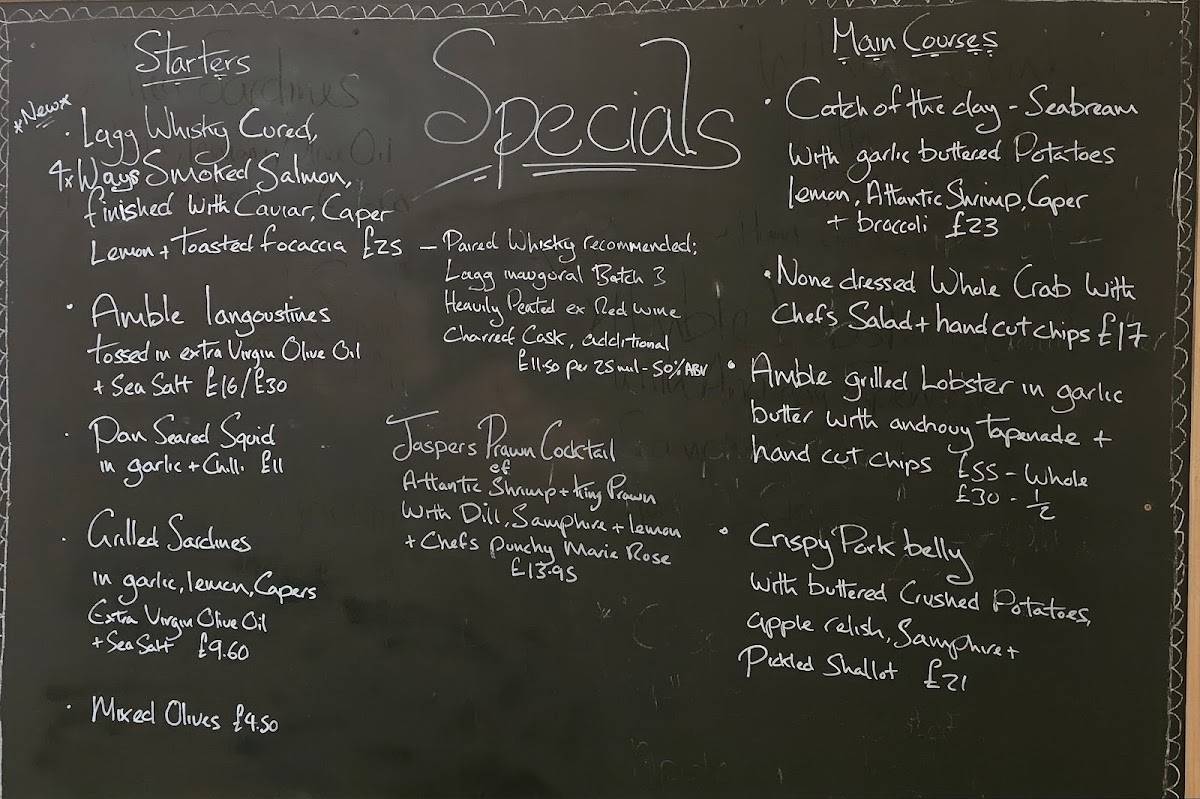 Specials
Starters
*New*
· Lagg Whisky Cured,
4x Ways Smoked Salmon,
finished with Caviar, Caper
Lemon + Toasted focaccia £25
– Paired Whisky recommended;
Lagg inaugural Batch 3
Heavily Peated ex Red wine
Charred Cask, additional
£11.50 per 25ml - 50% ABV
· Amble langoustines
tossed in extra Virgin Olive Oil
+ Sea Salt £16/£30
· Pan Seared Squid
in garlic + Chilli £11
· Grilled Sardines
in garlic, lemon, Capers
Extra Virgin Olive Oil
+ Sea Salt £9.60
· Mixed Olives £4.50
Jaspers Prawn Cocktail
of
Atlantic Shrimp + King Prawn
with Dill, Samphire + lemon
+ Chefs punchy Marie Rose
£13.95
Main Courses
· Catch of the day - Seabream
with garlic buttered Potatoes
lemon, Atlantic Shrimp, Caper
+ broccoli £23
· None dressed Whole Crab with
Chefs Salad + hand cut chips £17
· Amble grilled Lobster in garlic
butter with anchovy tapenade +
hand cut chips £55 - Whole
£30 - 1/2
· Crispy Pork belly
with buttered Crushed Potatoes,
apple relish, Samphire +
Pickled Shallot £21